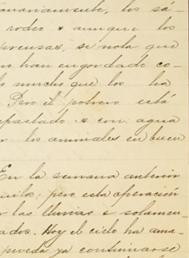 manamente, los sá
rodeo & aunque los
prensas, se nota que
han engordado co
lo mucho que los ha
Pero el potrero está
apastado & con agua
los animales en buen
En la semana anterior
pero esta operación
las lluvias & solamen
ados. Hoy el cielo ha ama
pueda ya continuarse